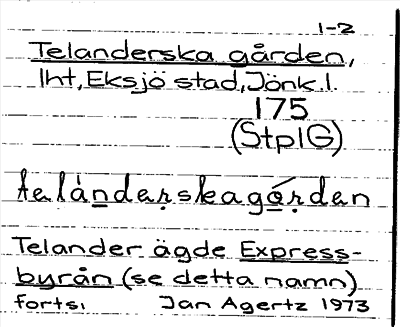 1-2
Telanderska gården,
Iht, Eksjö stad, Jönk.l.
175
(StplG)
telàndạrskagó̱ṛdan
Telander ägde Express-
byrån (se detta namn)
forts. Jan Agertz 1973